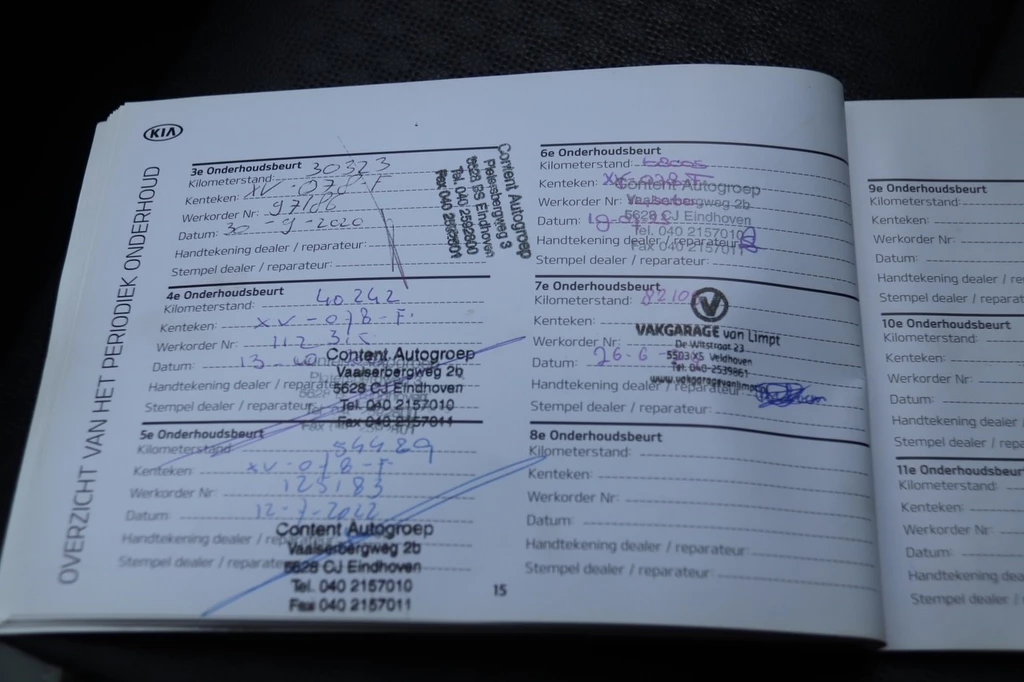 KIA
OVERZICHT VAN HET PERIODIEK ONDERHOUD
3e Onderhoudsbeurt
Kilometerstand: 30323
Kenteken: XV-078-F
Werkorder Nr: 97186
Datum: 30-9-2020
Handtekening dealer / reparateur:
Stempel dealer / reparateur:
Content Autogroep
Pietersbergweg 3
5628 BS Eindhoven
4e Onderhoudsbeurt
Kilometerstand: 40242
Kenteken: XV-078-F.
Werkorder Nr: 112315
Datum: 13
Handtekening dealer / reparateur
Stempel dealer / reparateur
Content Autogroep
Vaalserbergweg 2b
5628 CJ Eindhoven
Tel. 040 2157010
Fax 040 2157011
5e Onderhoudsbeurt
Kilometerstand: 54489
Kenteken: XV-078-F
Werkorder Nr: 125183
Datum: 12-7-2022
Handtekening dealer / reparateur
Stempel dealer / reparateur
Content Autogroep
Vaalserbergweg 2b
5628 CJ Eindhoven
Tel. 040 2157010
Fax 040 2157011
15
6e Onderhoudsbeurt
Kilometerstand:
Kenteken: XV-078-F
Werkorder Nr:
Datum:
Handtekening dealer / reparateur
Stempel dealer / reparateur:
Content Autogroep
Vaalserbergweg 2b
5628 CJ Eindhoven
Tel. 040 2157010
Fax 040 2157011
7e Onderhoudsbeurt
Kilometerstand:
Kenteken:
Werkorder Nr:
Datum: 26-6
Handtekening dealer / reparateur:
Stempel dealer / reparateur:
VAKGARAGE van Limpt
De Witstraat 23
5503 XS Veldhoven
Tel. 040-2539861
8e Onderhoudsbeurt
Kilometerstand:
Kenteken:
Werkorder Nr:
Datum:
Handtekening dealer / reparateur:
Stempel dealer / reparateur:
9e Onderhoudsbeurt
Kilometerstand:
Kenteken:
Werkorder Nr:
Datum:
Handtekening dealer /
Stempel dealer /
10e Onderhoudsbeurt
Kilometerstand:
Kenteken:
Werkorder Nr:
Datum:
Handtekening dealer
Stempel dealer /
11e Onderhoudsbeur
Kilometerstand:
Kenteken:
Werkorder Nr:
Datum:
Handtekening dealer
Stempel dealer /